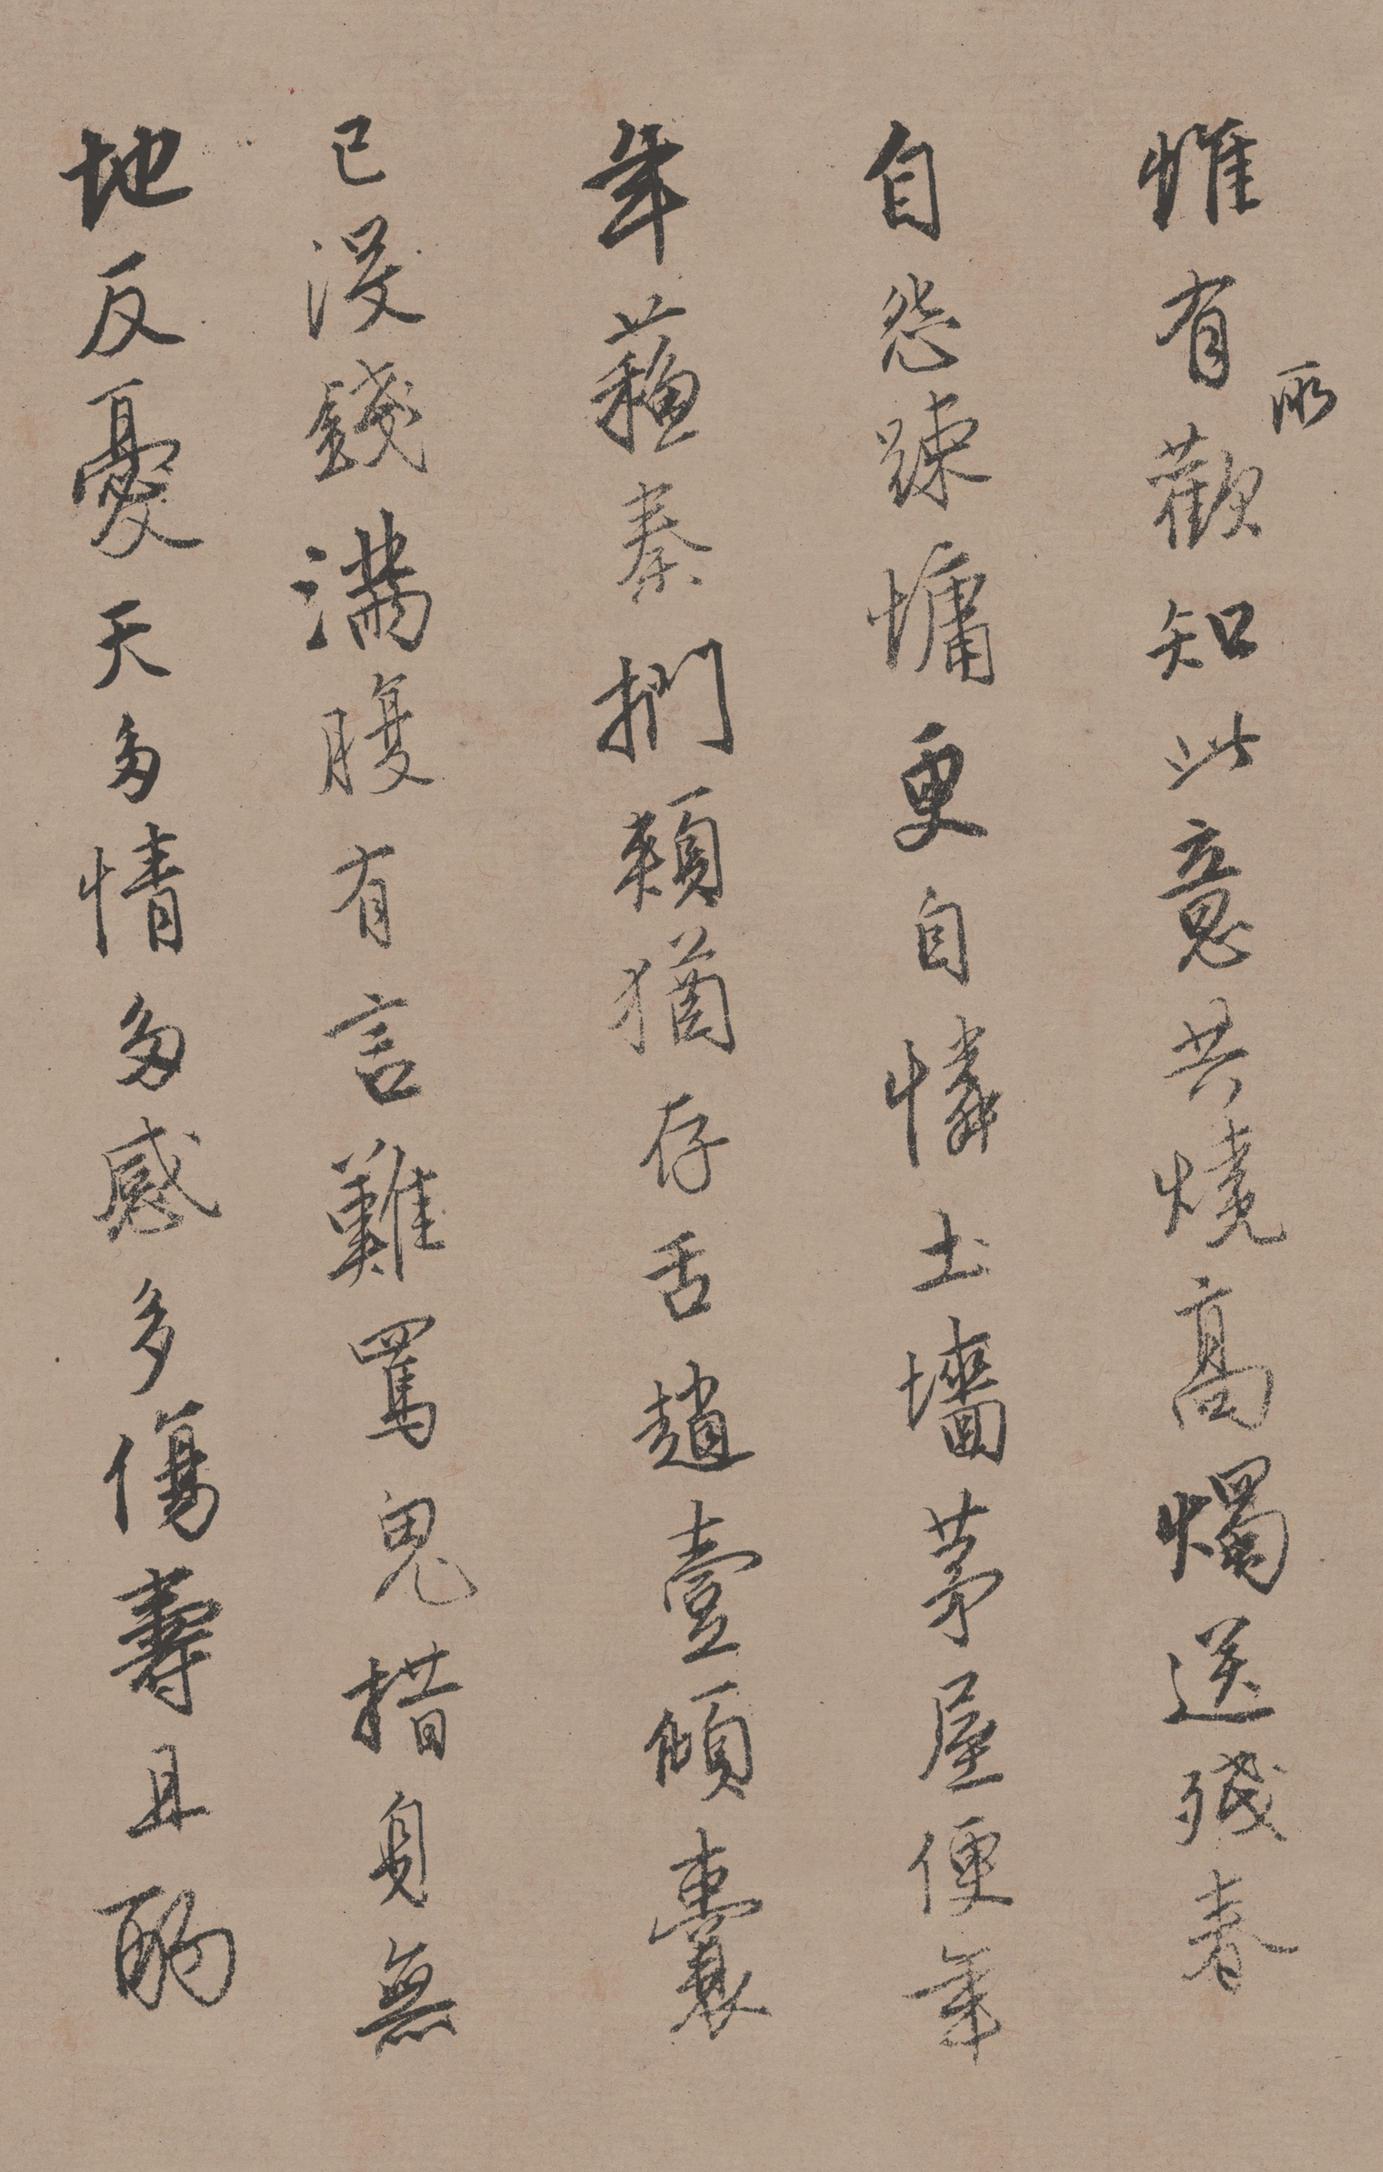 惟有所歡知此意共燒高燭送殘春
自怨疎慵更自憐土墻茅屋便年
年蘇秦捫頰猶存舌趙壹傾囊
已沒錢滿腹有言難罵鬼措身無
地反憂天多情多感多傷壽且酌